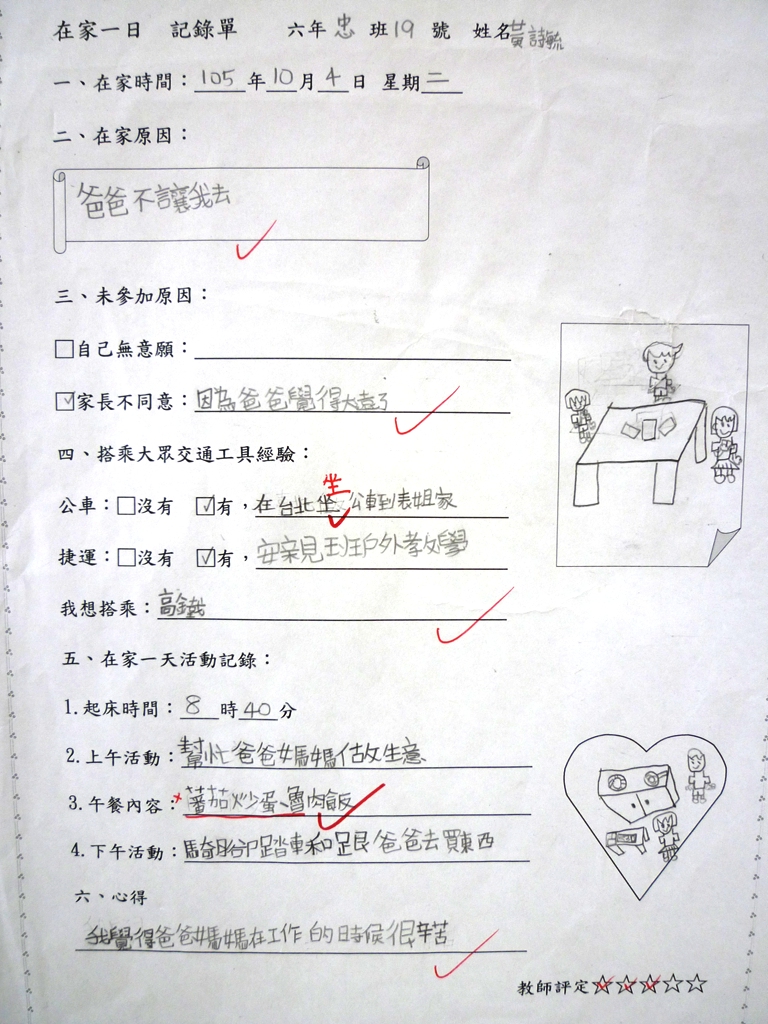 在家一日 記錄單 六年忠班19號 姓名黃詩毓
一、在家時間：105年10月4日 星期二
二、在家原因：
爸爸不讓我去
三、未參加原因：
□自己無意願：
☑家長不同意：因為爸爸覺得太遠了
四、搭乘大眾交通工具經驗：
坐
公車：□沒有 ☑有，在台北坐公車到表姐家
捷運：□沒有 ☑有，安親班戶外教學
我想搭乘：高鐵
五、在家一天活動記錄：
1.起床時間：8時40分
2.上午活動：幫忙爸爸媽媽做生意
3.午餐內容：蕃茄炒蛋、魯肉飯
4.下午活動：騎腳踏車和跟爸爸去買東西
六、心得
我覺得爸爸媽媽在工作的時候很辛苦
教師評定☆☆☆☆☆